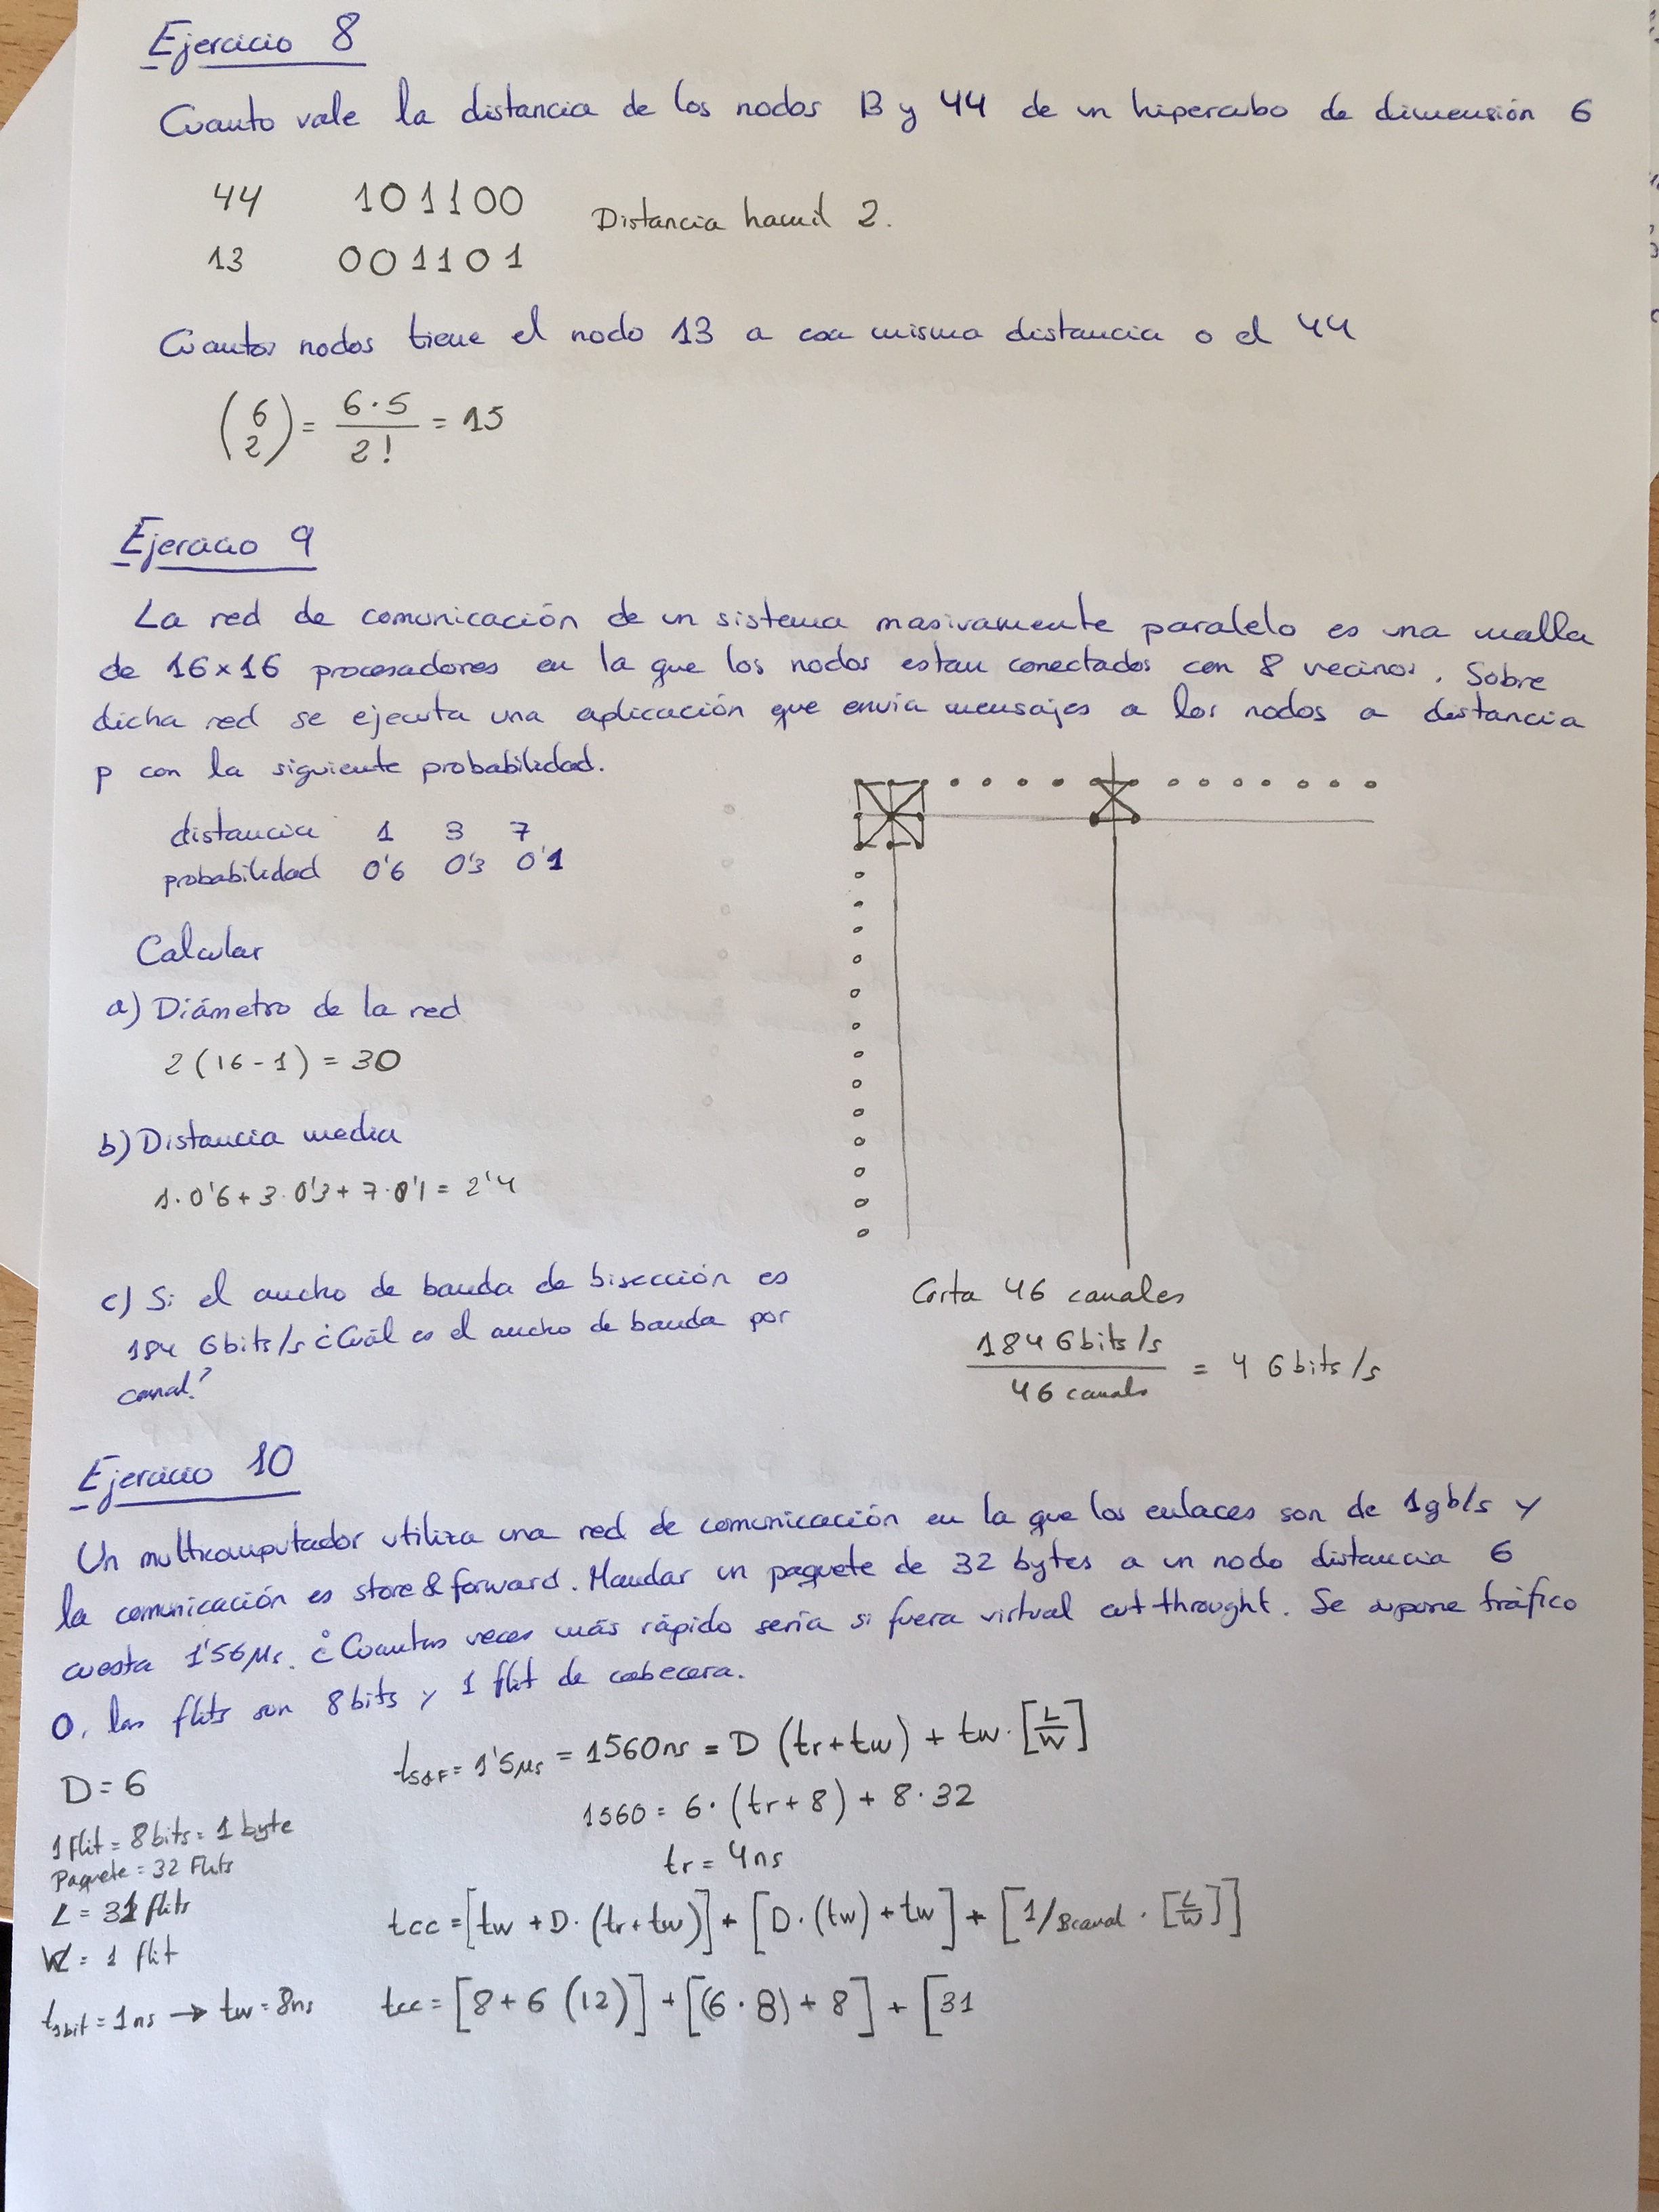 Ejercicio 8
Cuanto vale la distancia de los nodos 13 y 44 de un hipercubo de dimensión 6
44 101100
Distancia hamil 2.
13 001101
Cuantos nodos tiene el nodo 13 a misma distancia o el 44
(6 2) = 6·5 / 2! = 15
Ejercicio 9
La red de comunicación de un sistema masivamente paralelo es una malla
de 16x16 procesadores en la que los nodos estan conectados con 8 vecinos. Sobre
dicha red se ejecuta una aplicación que envia mensajes a los nodos a distancia
p con la siguiente probabilidad.
distancia 1 3 7
probabilidad 0'6 0'3 0'1
Calcular
a) Diámetro de la red
2(16-1) = 30
b) Distancia media
1·0'6 + 3·0'3 + 7·0'1 = 2'4
c) Si el ancho de banda de bisección es
184 Gbits/s ¿Cuál es el ancho de banda por
canal?
Corta 46 canales
184 Gbits/s / 46 canals = 4 Gbits/s
Ejercicio 10
Un multicomputador utiliza una red de comunicación en la que los enlaces son de 1gb/s y
la comunicación es store & forward. Mandar un paquete de 32 bytes a un nodo distancia 6
cuesta 1'56μs. ¿Cuantas veces más rápido sería si fuera virtual cut throught. Se supone tráfico
0, los flits son 8bits y 1 flit de cabecera.
tS&F = 1'5μs = 1560ns = D (tr+tw) + tw·[L/W]
D = 6
1560 = 6·(tr+8) + 8·32
1 Flit = 8bits = 1 byte
tr = 4ns
Paquete = 32 Flits
L = 31 flits
tcc = [tw + D·(tr+tw)] + [D·(tw) + tw] + [1/Bcanal · [L/W]]
W = 1 flit
t1bit = 1ns → tw = 8ns
tcc = [8 + 6 (12)] + [(6·8) + 8] + [31